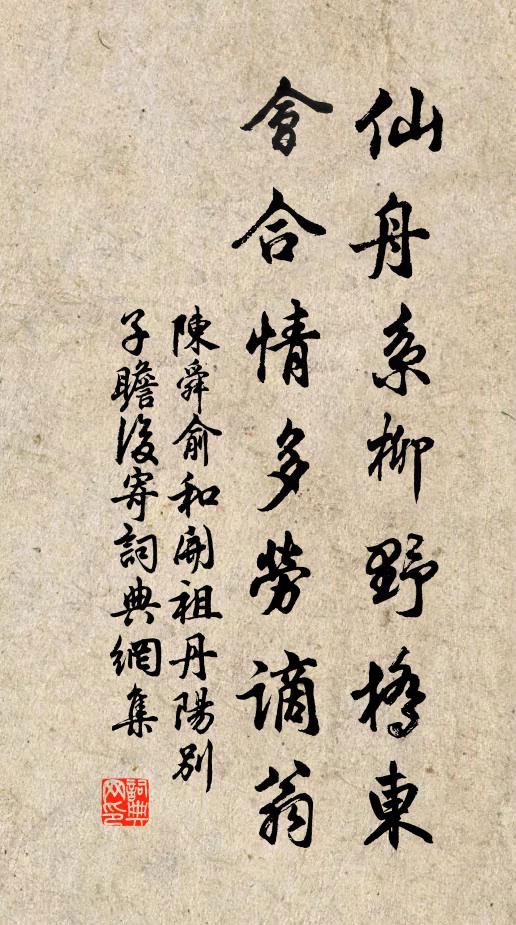 仙舟系柳野橋東
會合情多勞謫翁
陳舜俞和開祖丹陽別
子瞻後寄詞典網集
詞典网印